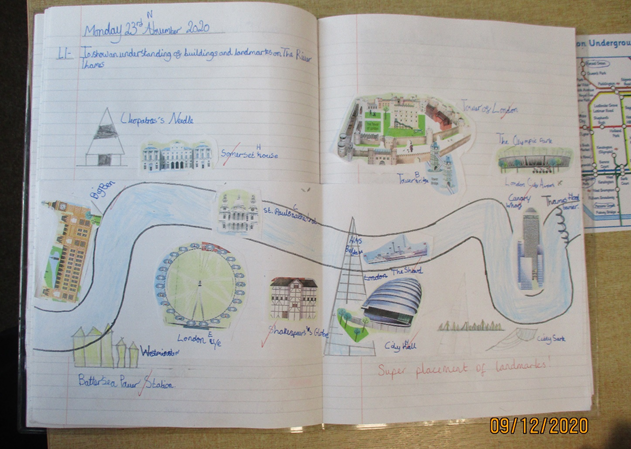 Monday 23rd November 2020
LI- To show an understanding of buildings and landmarks on The River
Thames
Cleopatra's Needle
Somerset house
Big Ben
St. Pauls
London Eye
Shakespear's Globe
Westminster
Battersea Power Station
Tower of London
Tower bridge
The Olympic Park
London
Canary
Wharf
HMS
London The Shard
City Hall
Super placement of landmarks
on Undergrou
09/12/2020